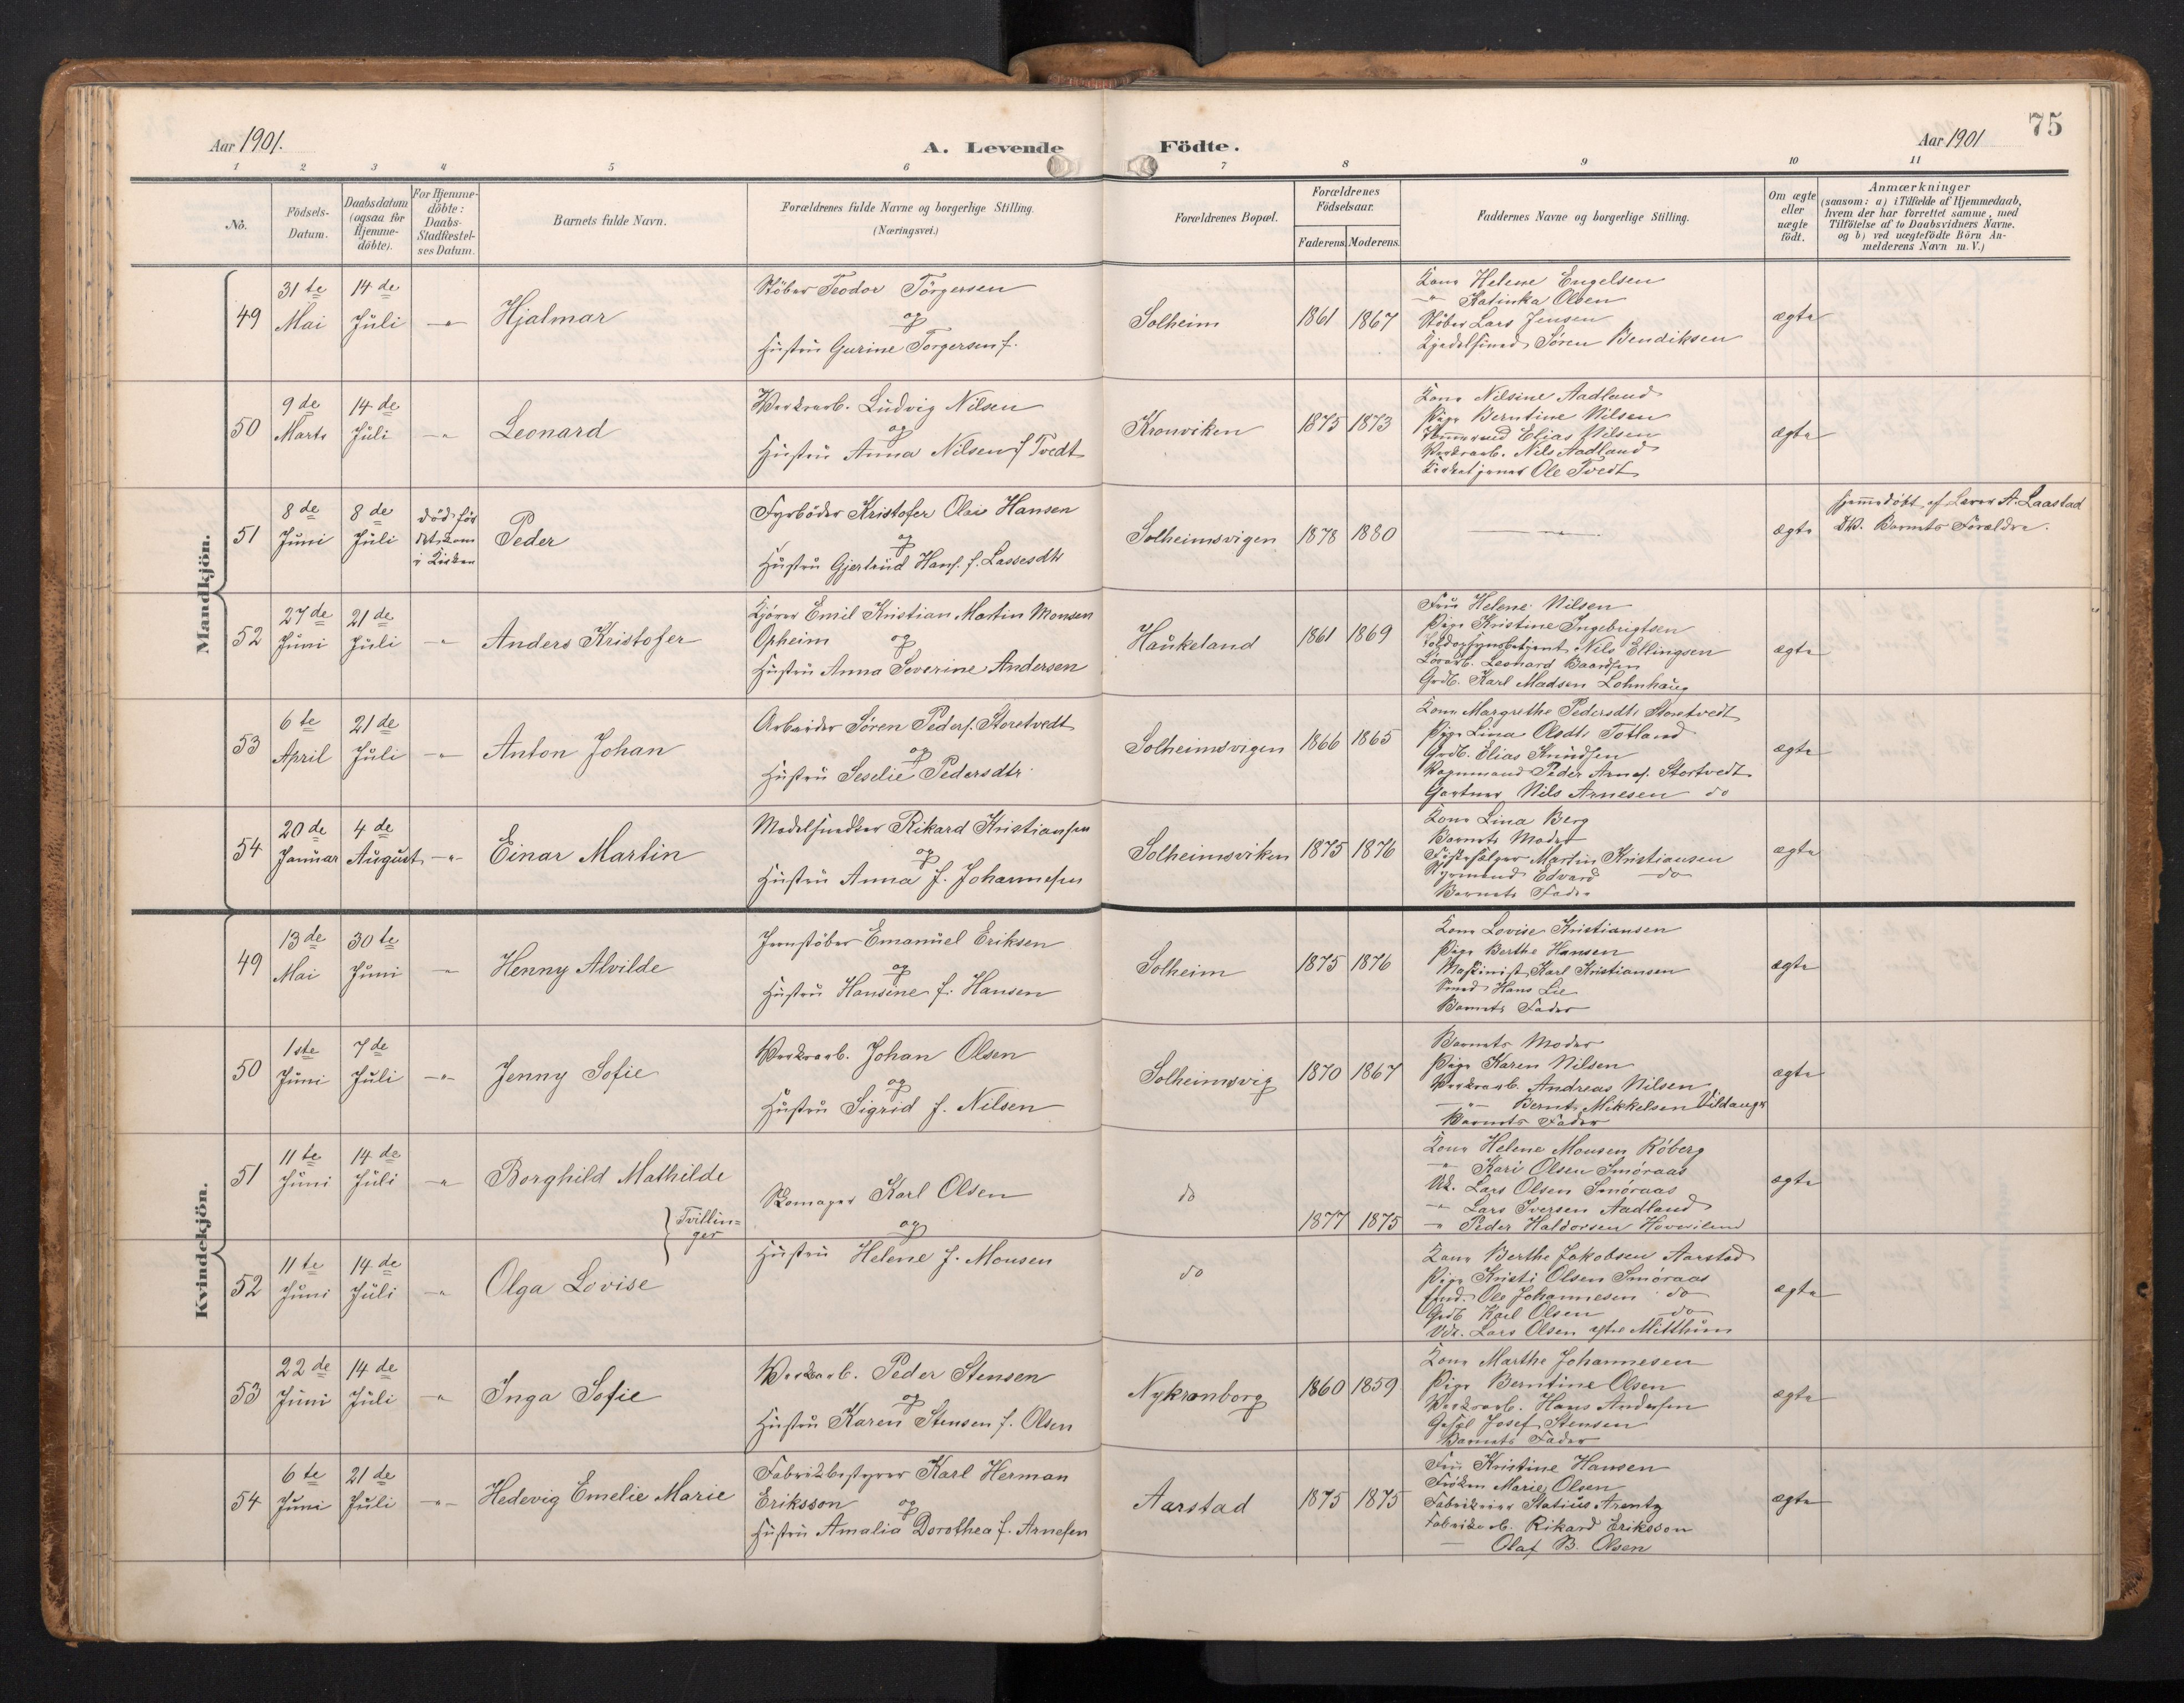 75
Aar 1901.
A. Levende Födte.
Aar 1901
1 2 3 4 5 6 7 8 9 10 11
No.
Födsels-
Datum.
Daabsdatum
(ogsaa for
Hjemme-
döbte).
For Hjemme-
döbte:
Daabs-
Stadfæstel-
ses Datum.
Barnets fulde Navn.
Forældrenes fulde Navne og borgerlige Stilling.
(Næringsvei.)
Forældrenes Bopæl.
Forældrenes
Födselsaar.
Faderens. Moderens.
Faddernes Navne og borgerlige Stilling.
Om ægte
eller
uægte
födt.
Anmærkninger
(saasom: a) i Tilfælde af Hjemmedaab,
hvem der har forrettet samme, med
Tilföielse af to Daabsvidners Navne.
og b) ved uægtefödte Börn An-
melderens Navn m.V.)
Mandkjön.
49
31te
Mai
14de
Juli
Hjalmar
Støber Teodor Törgersen
og
Hustru Gurine Torgersen f.
Solheim
1861 1867
Kone Helene Engelsen
" Katinka Olsen
Støber Lars Jensen
Kjedelsmed Sören Bendiksen
ægte
50
9de
Marts
14de
Juli
Leonard
Værksarb. Ludvig Nilsen
og
Hustru Anna Nilsen f. Tvedt
Kronviken
1875 1873
Kone Nilsine Aadland
Pige Berntine Nilsen
Elias Nilsen
Værksarb. Nils Aadland
Ole Tvedt
ægte
51
8de
Juni
8de
Juli
död för
det kom
i Kirken
Peder
Fyrböder Kristofer Olai Hansen
og
Hustru Gjertrud Hans. f. Lassesdtr
Solheimsvigen
1878 1880
ægte
Hjemmedøbt af Lærer A. Laastad
DV. Barnets Forældre.
52
27de
Juni
21de
Juli
Anders Kristofer
Kjörer Emil Kristian Martin Monsen
Opheim og
Hustru Anna Severine Andersen
Haukeland
1861 1869
Fru Helene Nilsen
Pige Kristine Ingebrigtsen
Nils Ellingsen
Leonard Baardsen
Grdb. Karl Madsen Lohnhaug
ægte
53
6te
April
21de
Juli
Anton Johan
Arbeider Sören Peders. Storetvedt
og
Hustru Seselie Pedersdtr.
Solheimsvigen
1866 1865
Kone Margrethe Pedersdtr Storetvedt
Pige Lina Olsdtr Totland
Grdb. Elias Knudsen
Vognmand Peder Arnes. Stortvedt
Gartner Nils Arnesen do
ægte
54
20de
Januar
4de
August
Einar Martin
Modelsnedker Rikard Kristiansen
og
Hustru Anna f. Johannesen
Solheimsviken
1875 1876
Kone Lina Berg
Barnets Moder
Martin Kristiansen
Styrmand Edvard do
Barnets Fader
ægte
Kvindekjön.
49
13de
Mai
30te
Juni
Henny Alvilde
Jernstöber Emanuel Eriksen
og
Hustru Hansine f. Hansen
Solheim
1875 1876
Kone Lovise Kristiansen
Pige Berthe Hansen
Maskinist Karl Kristiansen
Smed Hans Lie
Barnets Fader
ægte
50
1ste
Juni
7de
Juli
Jenny Sofie
Værksarb. Johan Olsen
og
Hustru Sigrid f. Nilsen
Solheimsvig
1870 1867
Barnets Moder
Pige Karen Nilsen
Værksarb. Andreas Nilsen
" Bernt Mikkelsen
Barnets Fader
ægte
51
11te
Juni
14de
Juli
Borghild Mathilde
Tvillin=
ger
Skomager Karl Olsen
og
Hustru Helene f. Monsen
do
1877 1875
Kone Helene Monsen Röberg
" Kari Olsen Smöraas
Uk. Lars Olsen Smöraas
" Lars Iversen Aadland
" Peder Haldorsen
ægte
52
11te
Juni
14de
Juli
Olga Lovise
do
Kone Berthe Jakobsen Aarstad
Pige Kristi Olsen Smöraas
Ole Johannesen do
Grdb Karl Olsen do
Lars Olsen Midthun
ægte
53
22de
Juni
14de
Juli
Inga Sofie
Værksarb. Peder Stensen
og
Hustru Karen Stensen f. Olsen
Nykronborg
1860 1859
Kone Marthe Johannesen
Pige Berntine Olsen
Værksarb. Hans Andersen
Josef Stensen
Barnets Fader
ægte
54
6te
Juni
21de
Juli
Hedevig Emelie Marie
Fabrikbestyrer Karl Herman
Eriksson og
Hustru Amalia Dorothea f. Arnesen
Aarstad
1875 1875
Fru Kristine Hansen
Fröken Marie Olsen
Statius Arentz
Fabrikarb. Rikard Eriksson
Olaf B. Olsen
ægte